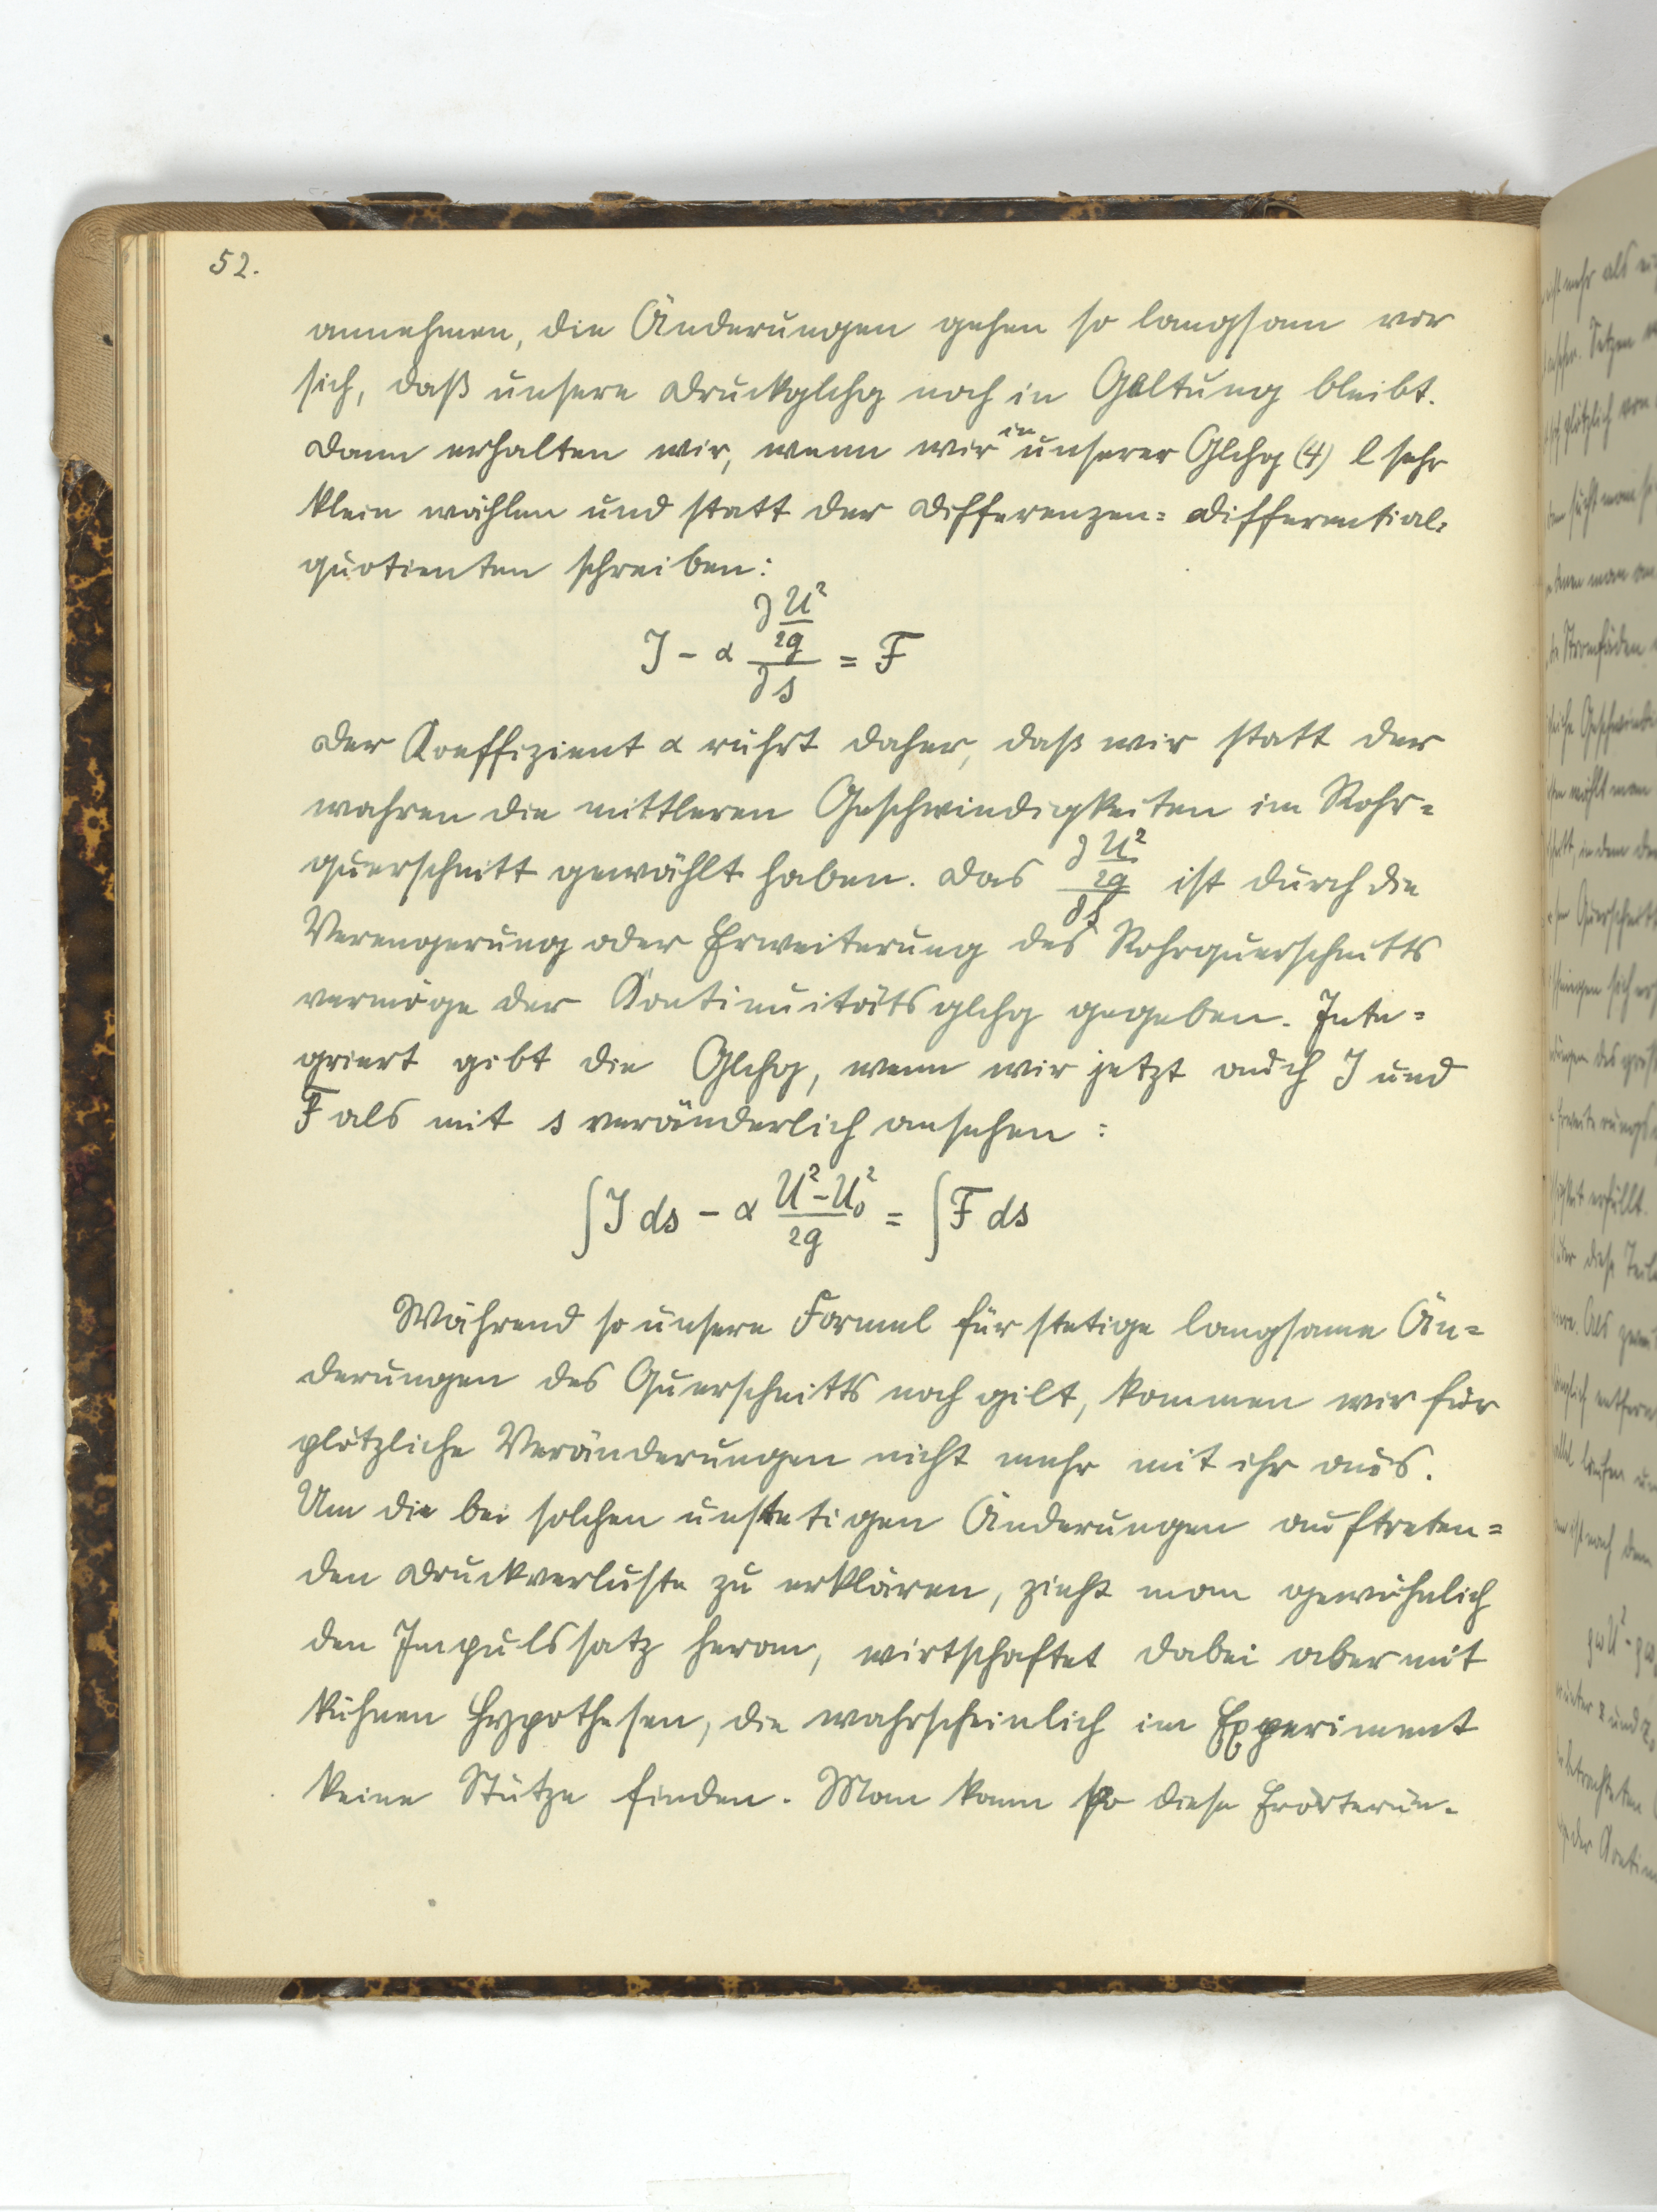 52.
annehmen, die Änderungen gehen so langsam vor
sich, daß unsere Druckglchg noch in Geltung bleibt.
Dann erhalten wir, wenn wir in unserer Glchg (4) l sehr
klein wählen und statt der Differenzen= Differential=
quotienten schreiben:
J - α ∂ U²/2g / ∂s = F
Der Koeffizient α rührt daher, daß wir statt der
wahren die mittleren Geschwindigkeiten im Rohr=
querschnitt gewählt haben. Das ∂ U²/2g / ∂s ist durch die
Verengerung oder Erweiterung des Rohrquerschnitts
vermöge der Kontinuitätsglchg gegeben. Inte=
griert gibt die Glchg, wenn wir jetzt auch J und
F als mit s veränderlich ansehen:
∫ J ds - α U² - U₀² / 2g = ∫ F ds
Während so unsere Formel für stetige langsame Än=
derungen des Querschnitts noch gilt, kommen wir für
plötzliche Veränderungen nicht mehr mit ihr aus.
Um die bei solchen unstetigen Änderungen auftreten=
den Druckverluste zu erklären, zieht man gewöhnlich
den Impulssatz heran, wirtschaftet dabei aber mit
kühnen Hypothesen, die wahrscheinlich im Experiment
keine Stütze finden. Man kann so diese Erörterun=